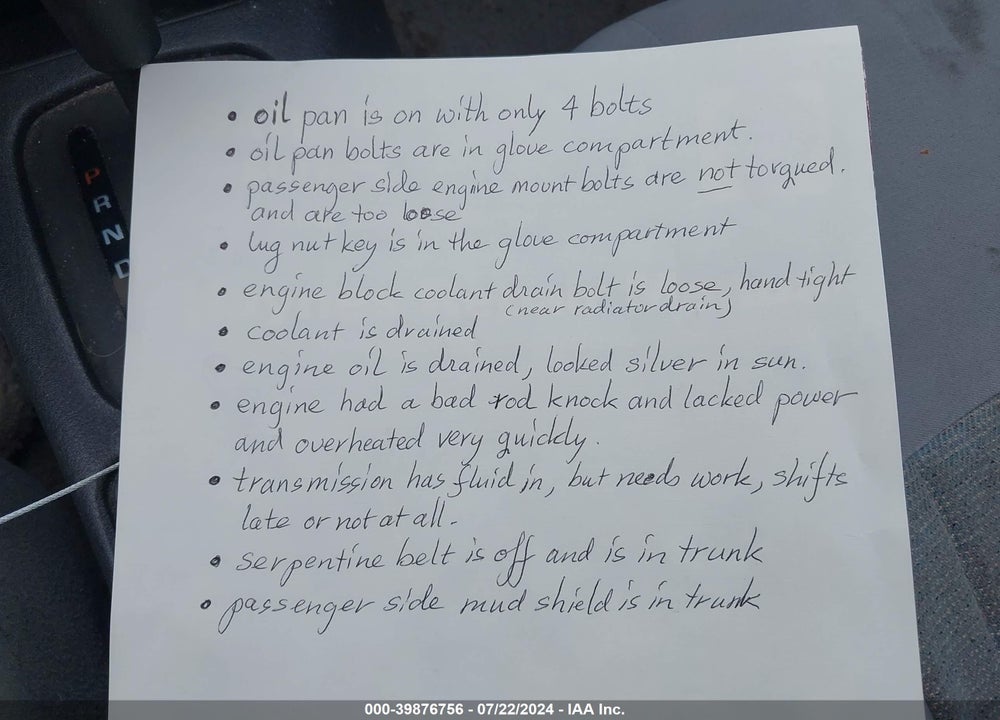 • oil pan is on with only 4 bolts
• oil pan bolts are in glove compartment.
• passenger side engine mount bolts are not torgued.
and are too loose
• lug nut key is in the glove compartment
• engine block coolant drain bolt is loose, hand tight
(near radiator drain)
• coolant is drained
• engine oil is drained, looked silver in sun.
• engine had a bad rod knock and lacked power
and overheated very quickly.
• transmission has fluid in, but needs work, shifts
late or not at all.
• serpentine belt is off and is in trunk
• passenger side mud shield is in trunk
P
R
N
D
000-39876756 - 07/22/2024 - IAA Inc.